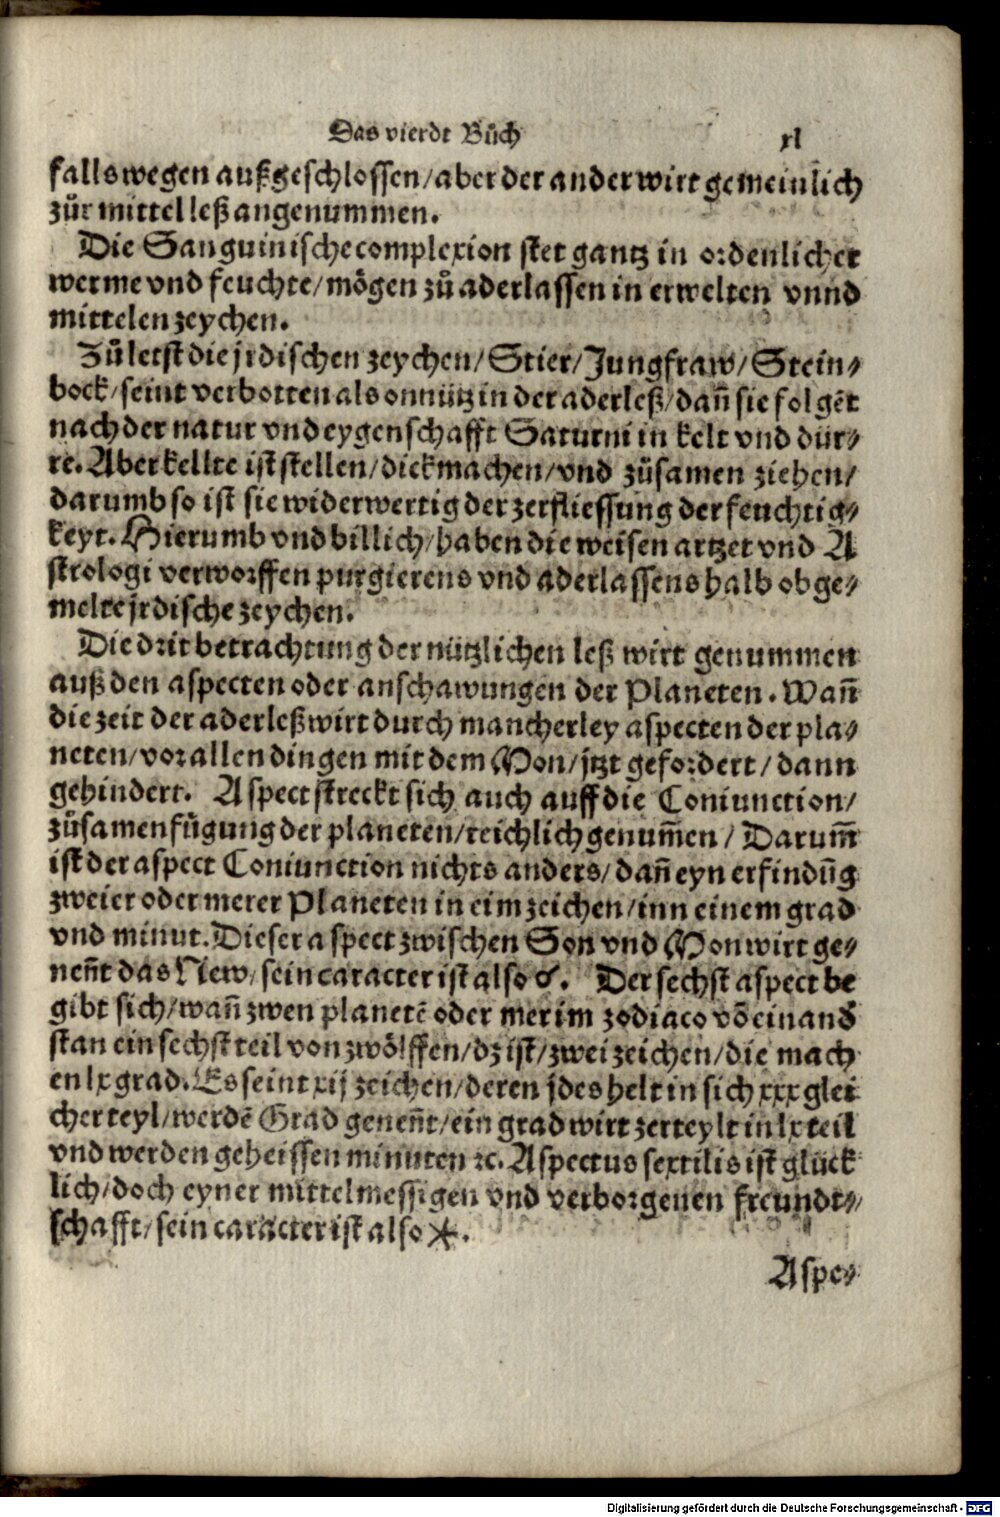 Das vierdt Bůch
xl
falls wegen außgeschlossen/ aber der ander wirt gemeinlich
zůr mittel leß angenummen.
Die Sanguinische complexion stet gantz in ordenlicher
werme vnd feuchte/ mögen zů aderlassen in erwelten vnnd
mittelen zeychen.
Zůletst die jrdischen zeychen/ Stier/ Jungfraw/ Stein⸗
bock/ seint verbotten als onnütz in der aderleß/ dañ sie folgẽt
nach der natur vnd eygenschafft Saturni in kelt vnd dür⸗
re. Aber kellte ist stellen/ dickmachen/ vnd zůsamen ziehen/
darumb so ist sie widerwertig der zerfliessung der feuchtig⸗
keyt. Hierumb vnd billich/ haben die weisen artzet vnd A
strologi verworffen purgierens vnd aderlassens halb obge⸗
melte jrdische zeychen.
Die drit betrachtung der nützlichen leß wirt genummen
auß den aspecten oder anschawungen der Planeten. Wañ
die zeit der aderleß wirt durch mancherley aspecten der pla⸗
neten/ vor allen dingen mit dem Mon/ jtzt gefordert/ dann
gehindert. Aspect streckt sich auch auff die Coniunction/
zůsamenfůgung der planeten/ reichlich genum̃en/ Darum̃
ist der aspect Coniunction nichts anders/ dañ eyn erfindũg
zweier oder merer Planeten in eim zeichen/ inn einem grad
vnd minut. Dieser aspect zwischen Son vnd Mon wirt ge⸗
neñt das New/ sein caracter ist also ☌. Der sechst aspect be
gibt sich/ wañ zwen planetẽ oder mer im zodiaco võ einand̕
stan ein sechst teil von zwölffen/ dz ist/ zwei zeichen/ die mach
en lx grad. Es seint xij zeichen/ deren jdes helt in sich xxx glei
cher teyl/ werdẽ Grad geneñt/ ein grad wirt zerteylt in lx teil
vnd werden geheissen minuten ⁊c. Aspectus sextilis ist glück
lich/ doch eyner mittelmessigen vnd verborgenen freundt⸗
schafft/ sein caracter ist also ⚹.
Aspe⸗
Digitalisierung gefördert durch die Deutsche Forschungsgemeinschaft - DFG